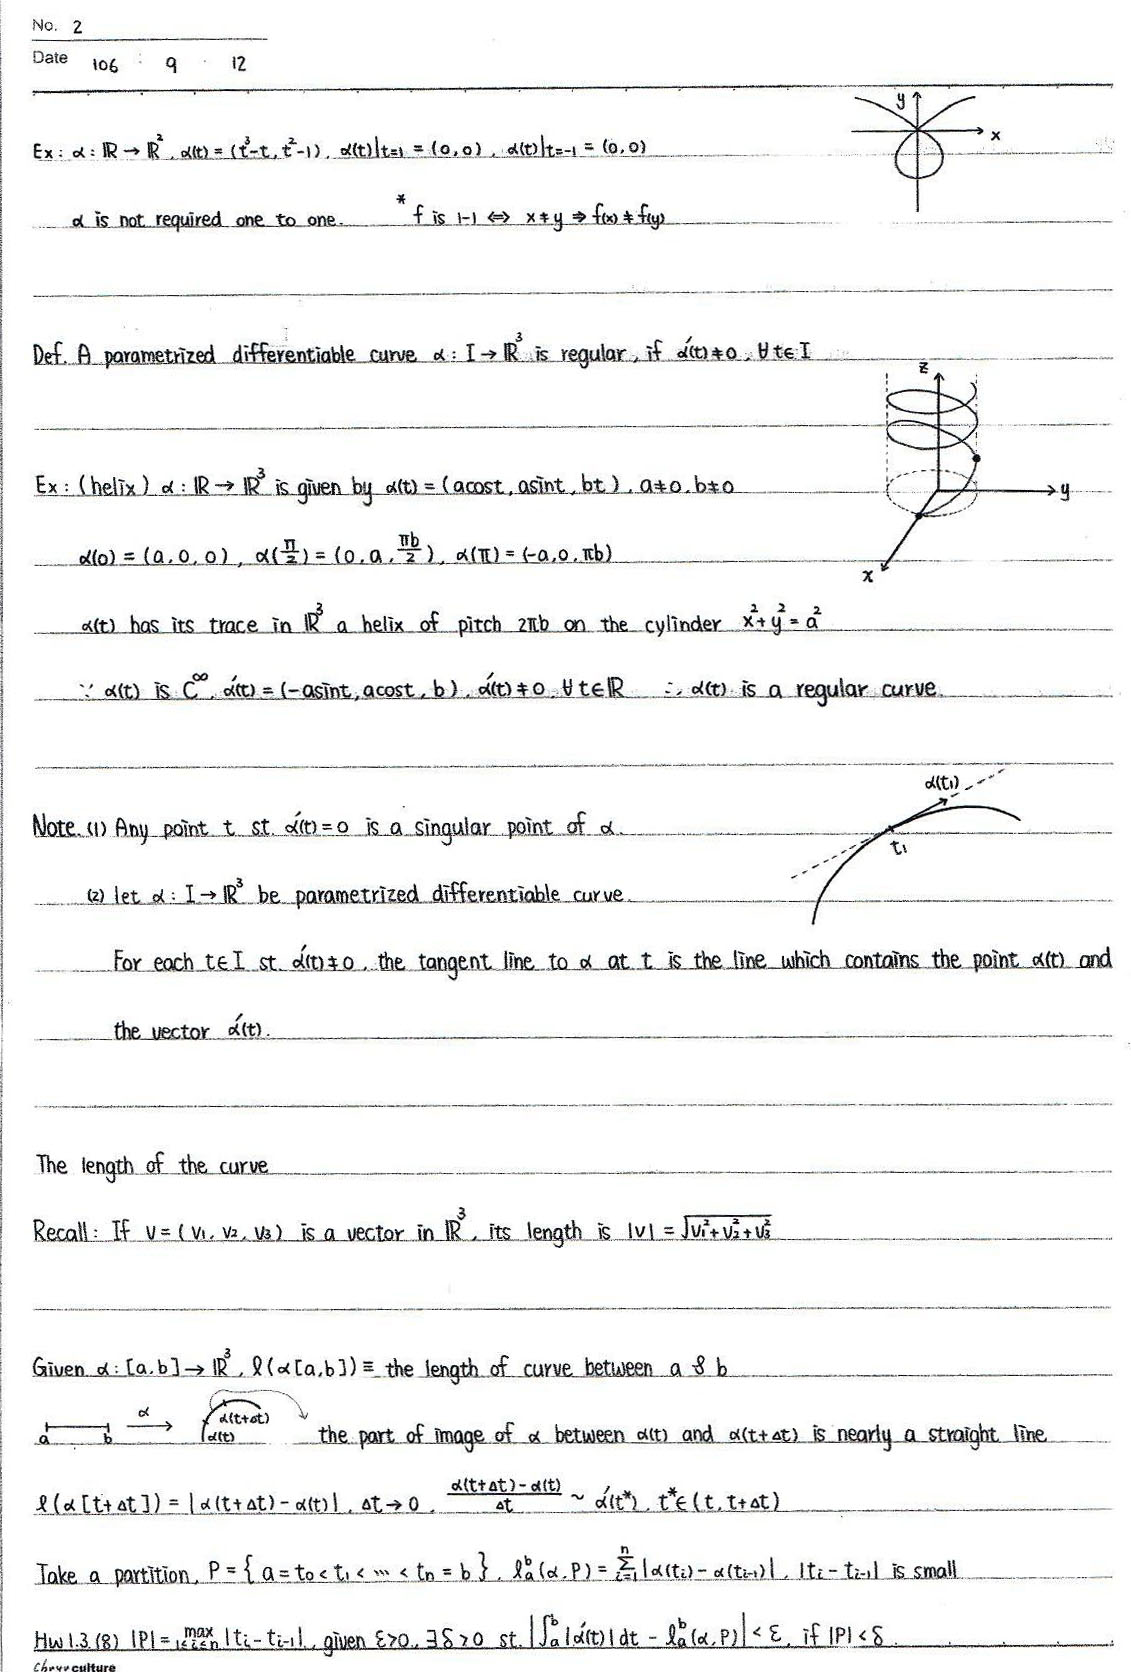 No. 2
Date 106 : 9 . 12
y
x
Ex : α : ℝ → ℝ², α(t) = (t³-t, t²-1), α(t)|t=1 = (0,0), α(t)|t=-1 = (0,0)
α is not required one to one. * f is 1-1 ⇔ x≠y ⇒ f(x)≠f(y)
Def. A parametrized differentiable curve α : I → ℝ³ is regular, if α'(t)≠0, ∀t∈I
z
y
x
Ex : (helix) α : ℝ → ℝ³ is given by α(t) = (acost, asint, bt), a≠0, b≠0
α(0) = (a, 0, 0), α(π/2) = (0, a, πb/2), α(π) = (-a, 0, πb)
α(t) has its trace in ℝ³ a helix of pitch 2πb on the cylinder x²+y²=a²
∵ α(t) is C^∞, α'(t) = (-asint, acost, b), α'(t)≠0, ∀t∈ℝ ∴ α(t) is a regular curve.
α(t₁)
t₁
Note. (1) Any point t st. α'(t)=0 is a singular point of α.
(2) let α : I → ℝ³ be parametrized differentiable curve.
For each t∈I st. α'(t)≠0, the tangent line to α at t is the line which contains the point α(t) and
the vector α'(t).
The length of the curve
Recall : If v = (v₁, v₂, v₃) is a vector in ℝ³, its length is |v| = √(v₁²+v₂²+v₃²)
Given α : [a,b] → ℝ³, ℓ(α[a,b]) ≡ the length of curve between a & b
a b α α(t+Δt) α(t) the part of image of α between α(t) and α(t+Δt) is nearly a straight line
ℓ(α[t+Δt]) = |α(t+Δt) - α(t)|, Δt→0, (α(t+Δt)-α(t))/Δt ~ α'(t*), t*∈(t, t+Δt)
Take a partition, P = { a=t₀<t₁<…<tₙ=b }, ℓₐᵇ(α,P) = Σᵢ₌₁ⁿ |α(tᵢ) - α(tᵢ₋₁)|, |tᵢ - tᵢ₋₁| is small
Hw1.3.(8) |P| = max 1≤i≤n |tᵢ-tᵢ₋₁|, given ε>0, ∃δ>0 st. |∫ₐᵇ|α'(t)|dt - ℓₐᵇ(α,P)| < ε, if |P|<δ
culture